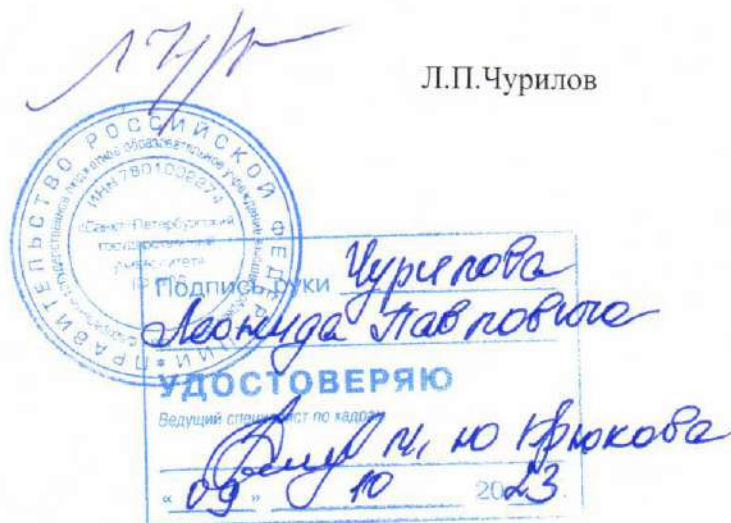 Л.П.Чурилов
ПРАВИТЕЛЬСТВО РОССИЙСКОЙ ФЕДЕРАЦИИ
ИНН 7801002274
«Санкт-Петербургский
государственный
университет»
Подпись руки Чурилова
Леонида Павловича
УДОСТОВЕРЯЮ
Ведущий специалист по кадрам
Крюкова
« 09 » 10 2023